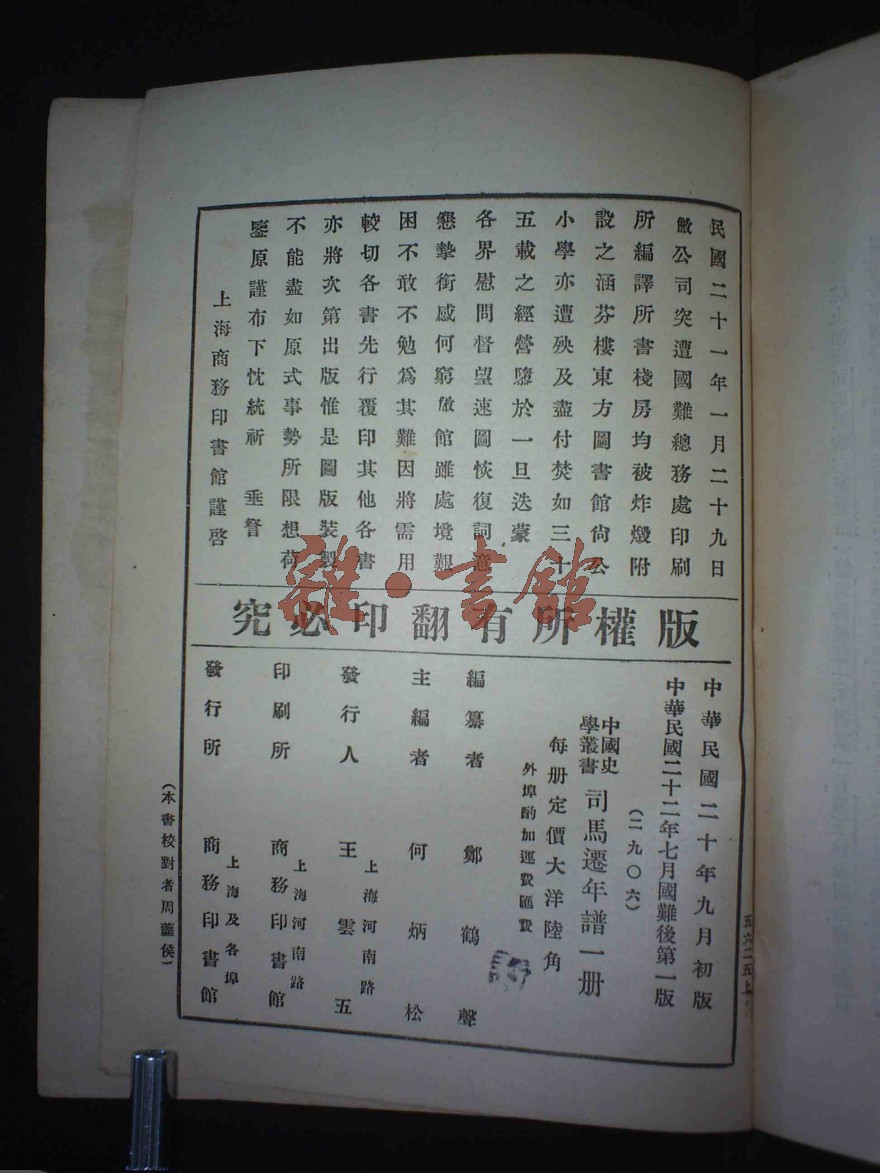 民國二十一年一月二十九日
敝公司突遭國難總務處印刷
所編譯所書棧房均被炸燬附
設之涵芬樓東方圖書館尙公
小學亦遭殃及盡付焚如三十
五載之經營隳於一旦迭蒙
各界慰問督望速圖恢復詞意
懇摯銜感何窮敝館雖處境艱
困不敢不勉爲其難因將需用
較切各書先行覆印其他各書
亦將次第出版惟是圖版裝製
不能盡如原式事勢所限想荷
鑒原謹布下忱統祈 垂詧
上海商務印書館謹啓
版權所有翻印必究
中華民國二十年九月初版
中華民國二十二年七月國難後第一版
(二九〇六)
中國史
學叢書 司馬遷年譜一册
每册定價大洋陸角
外埠酌加運費匯費
編纂者 鄭鶴聲
主編者 何炳松
上海河南路
發行人 王雲五
上海河南路
印刷所 商務印書館
上海及各埠
發行所 商務印書館
(本書校對者周 侯)
五六二五上
雜·書館